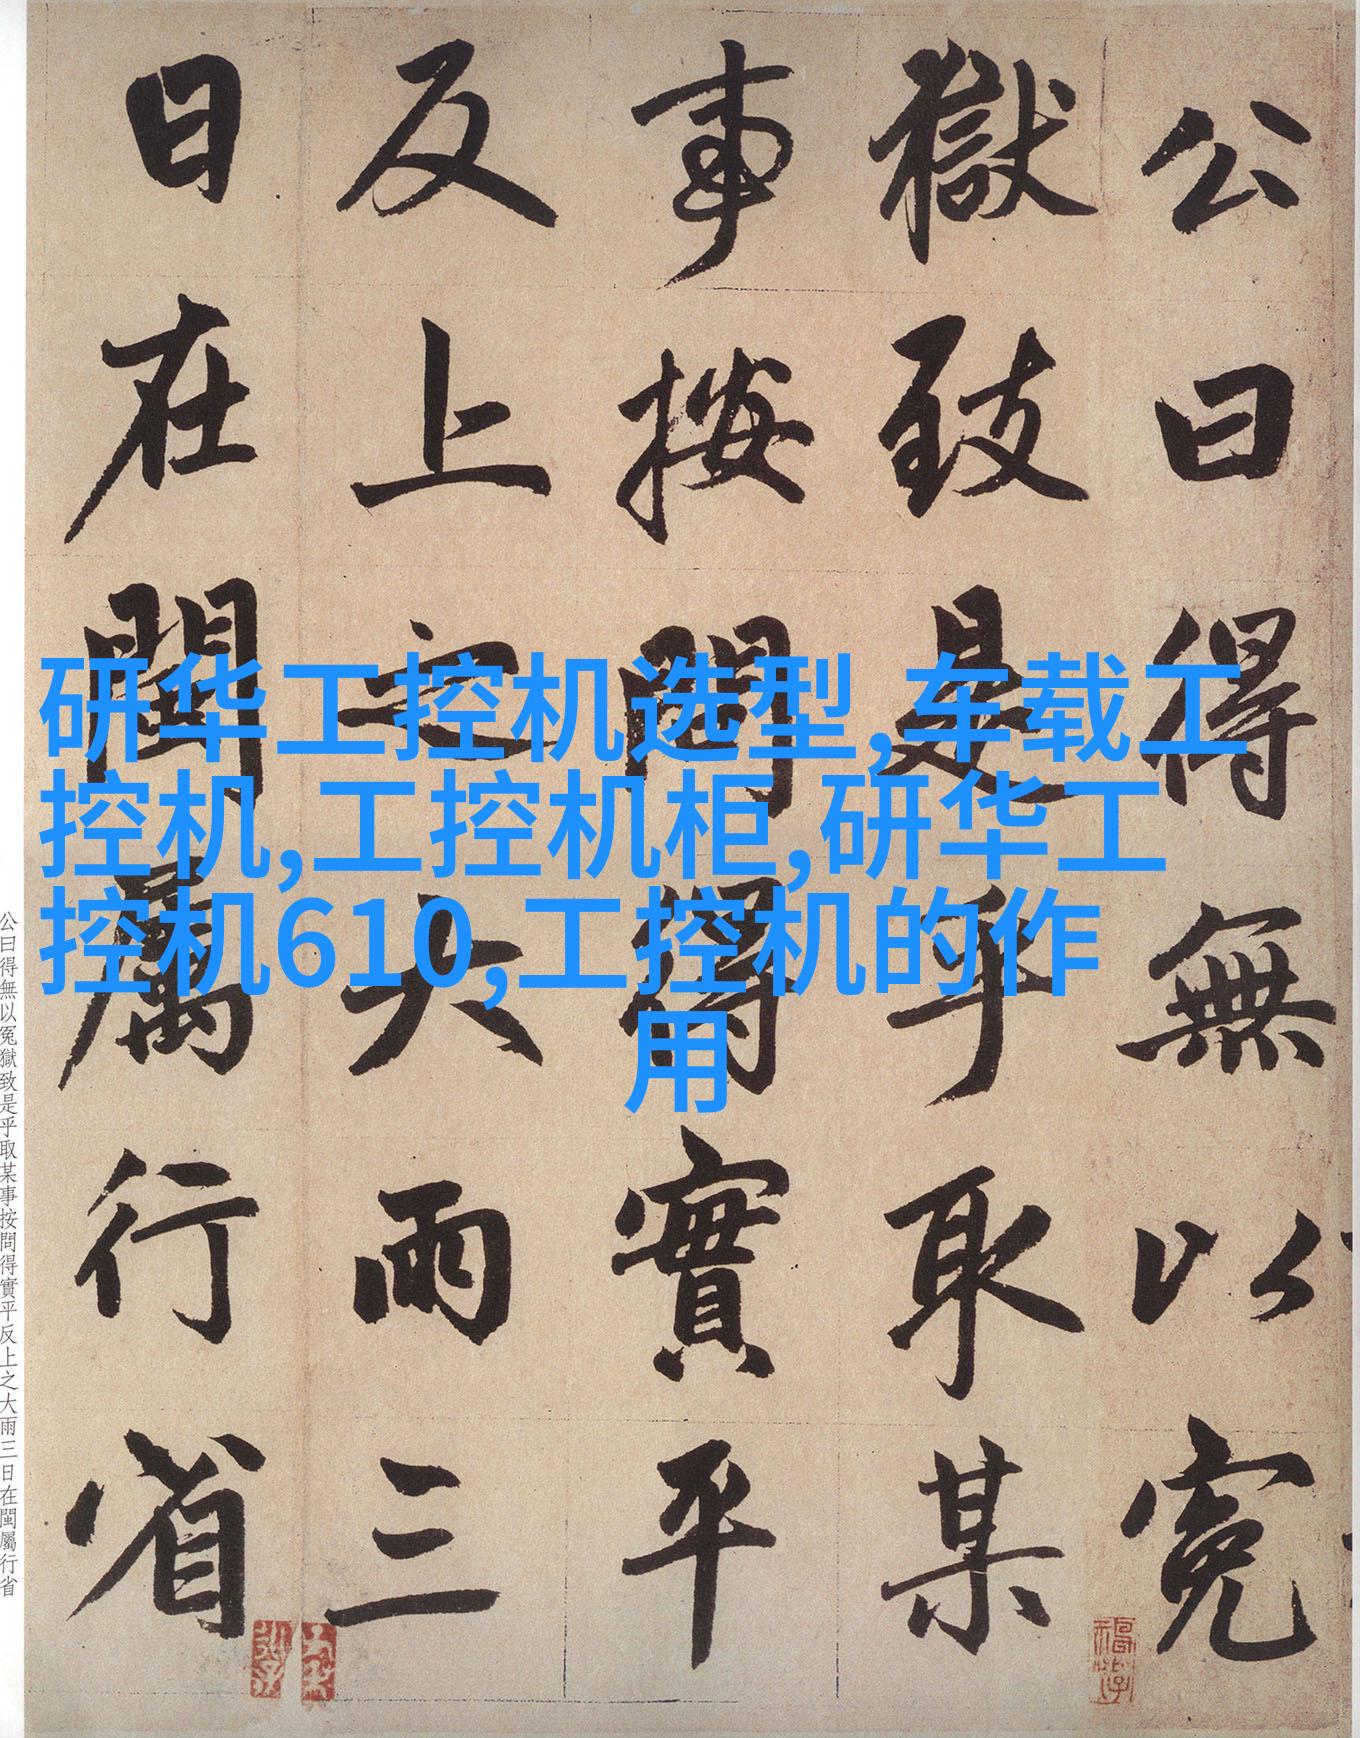 公曰得無以冤
獄致是乎取某
事按問得實平
反上之大雨三
日在閩屬行省
研华工控机选型,车载工
控机,工控机柜,研华工
控机610,工控机的作
用
公曰得無以冤獄致是乎取某事按問得實平反上之大雨三日在閩屬行省